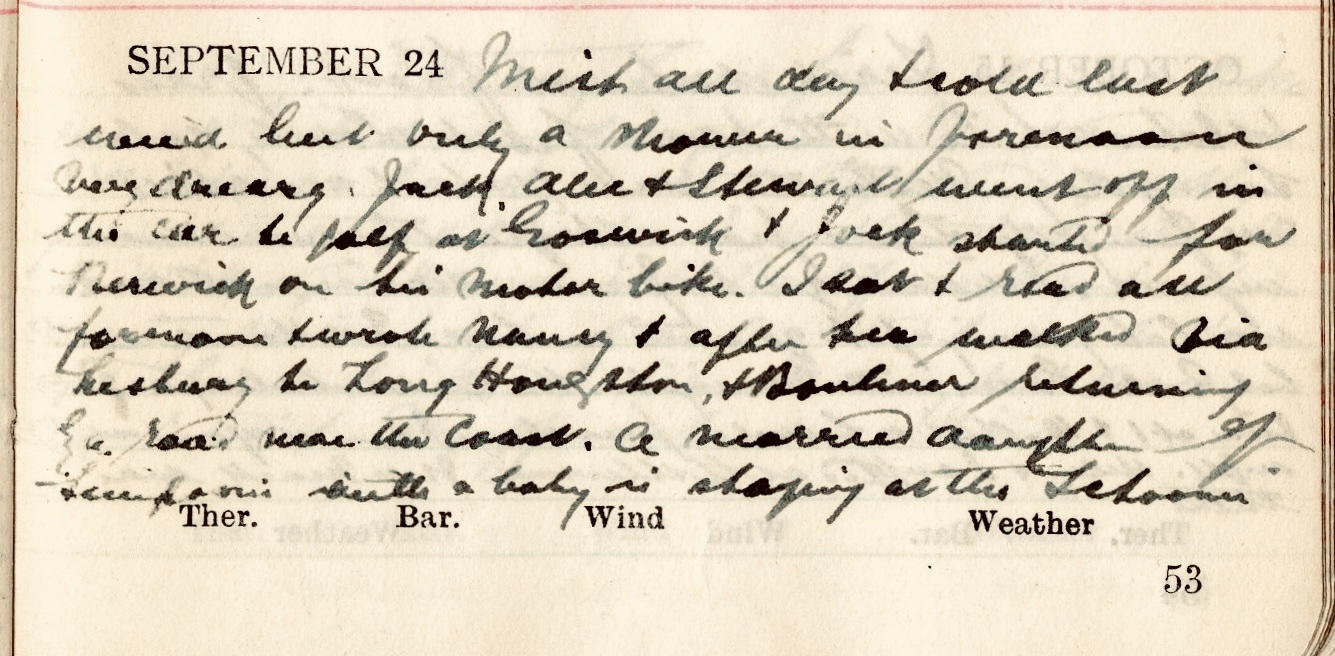 SEPTEMBER 24 Mist all day & cold east
wind but only a shower in forenoon
Very dreary. Jack, Alec & Stewart went off in
the car to golf at Goswick & Jock started for
Berwick on his motor bike. I sat & read all
forenoon & wrote Nancy & after tea walked via
Lesbury to Long Houghton, & Boulmer returning
by a road near the Coast. A married daughter of
with a baby is staying at the Schooner
Ther. Bar. Wind Weather
53